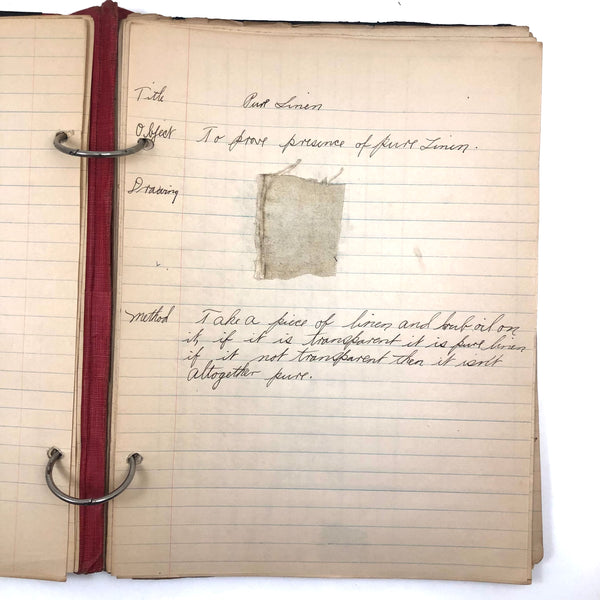 Title Pure Linen
Object To prove presence of pure Linen.
Drawing
Method Take a piece of linen and rub oil on
it, if it is transparent it is pure linen
if it not transparent then it isn't
altogether pure.